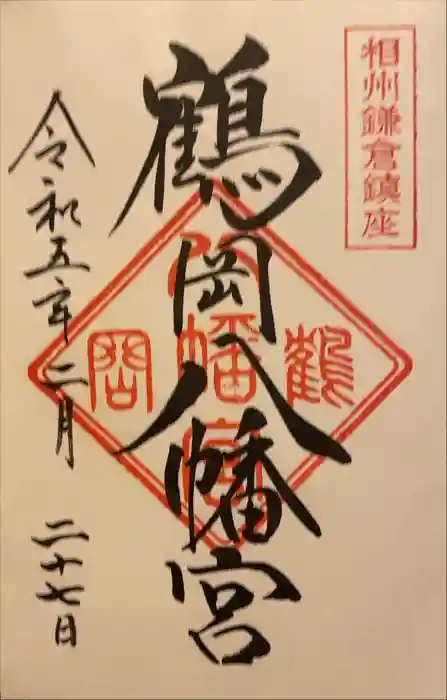 相州鎌倉鎮座
鶴岡八幡宮
鶴岡
八幡宮
令和五年二月二十七日